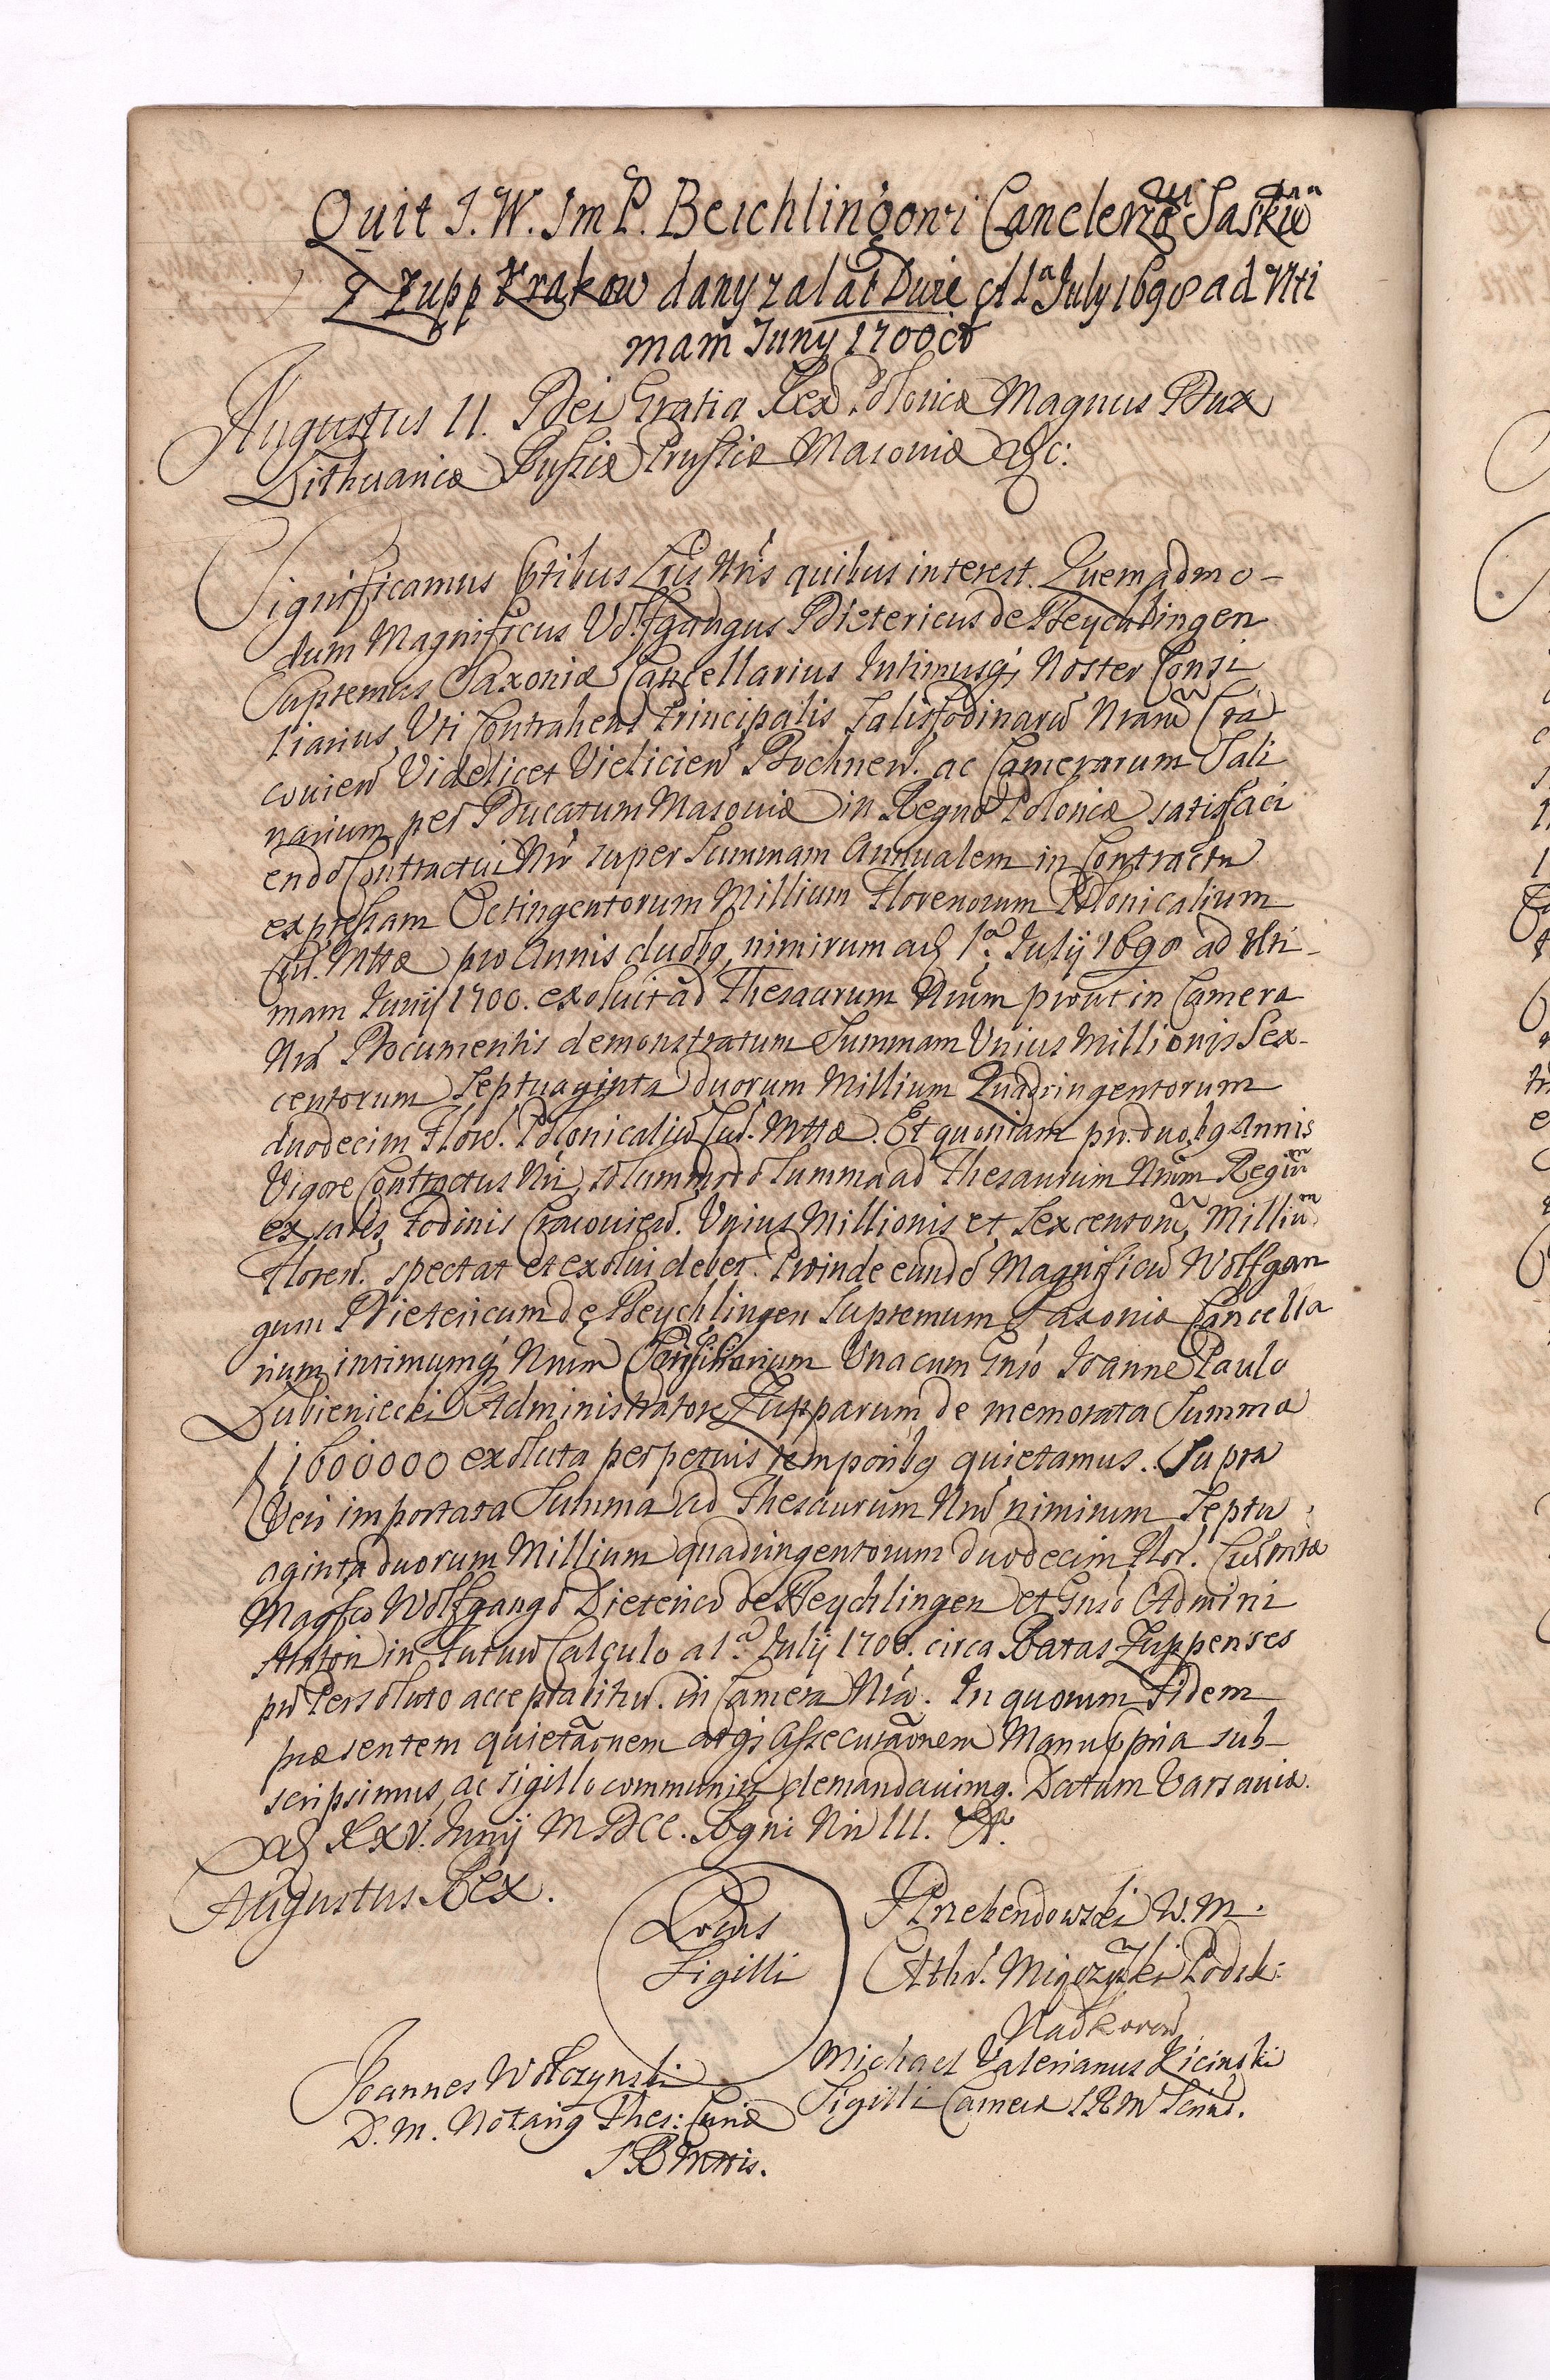 Quit J. W. Im P. Beichlingowi Canclerzowi Saskiem
Z Zupp Krakow dany za lat Dwie a 1a July 1698 ad Ulti
mam Juny 1700
Augustus II. Dei Gratia Rex Poloniæ Magnus Dux
Lithuaniæ Russiæ Prussiæ Masoviæ &c:
Significamus ptibus Lris Nris quibus interest. Quemadmo-
dum Magnificus Volfgangus Dietericus de Beychlingen
Supremus Saxoniæ Cancellarius Intimusq; Noster Consi
liarius, Uti Contrahens Principalis Salisfodinarū Nrarū Cra
covien Videlicet Vielicien Bochnen. ac Camerarum Sali
narium per Ducatum Masoviæ in Regno Poloniæ satisfaci
endo Contractui Nro super Summam Annualem in Contractu
expressam Octingentorum Millium Florenorum Polonicalium
Cur. Mttæ pro Annis duobg, nimirum a 1a Julij 1698 ad Ulti-
mam Junij 1700. exoluit ad Thesaurum Nrum prout in Camera
Nra Documentis demonstratum Summam Unius Millionis Sex-
centorum Septuaginta duorum Millium Quadringentorum
duodecim Floren. Polonicaliū Cur. Mttæ. Et quoniam pro duobg Annis
Vigore Contractus Nri, solummodo Summa ad Thesaurum Nrum Regiū
ex salis Fodinis Cracovien. Unius Millionis et Sexcentorū Milliū
Floren. spectat et exolui debet. Proinde eundē Magnificū Wolfgan
gum Dietericum de Beychlingen Supremum Saxoniæ Cancella
rium intimumq; Nrum Consiliarium Una cum Gnso Joanne Paulo
Lubieniecki Administratore Zupparum de memorata Summa
f 1600000 exoluta perpetuis temporibg quietamus. Supra
Vero importata Summa ad Thesaurum Nrū nimirum Septu
aginta duorum Millium quadringentorum duodecim Flor. Cur Mttæ
Magfco Wolfgango Dieterico de Beychlingen et Gnso Admini
stratori in futuro Calculo a 1a Julij 1700. circa Ratas Zuppenses
pro Persoluto acceptabitur in Camera Nra. In quorum Fidem
præsentem quietaōnem atq; Assecuraōnem Manu ppria sub-
scripsimus, ac sigillo communiri demandavimg. Datum Varsaviæ.
XXV. Junij MDCC. Regni Nri III. A.
Augustus Rex.
Locus
Sigilli
Przebendowski W. M.
Atha. Miączyński Podsk:
Nad Koron
Joannes Wołczynski
D. M. Notarig Thes: Curiæ
S R Mttis.
Michael Valerianus Kiciński
Sigilli Cameræ S R M